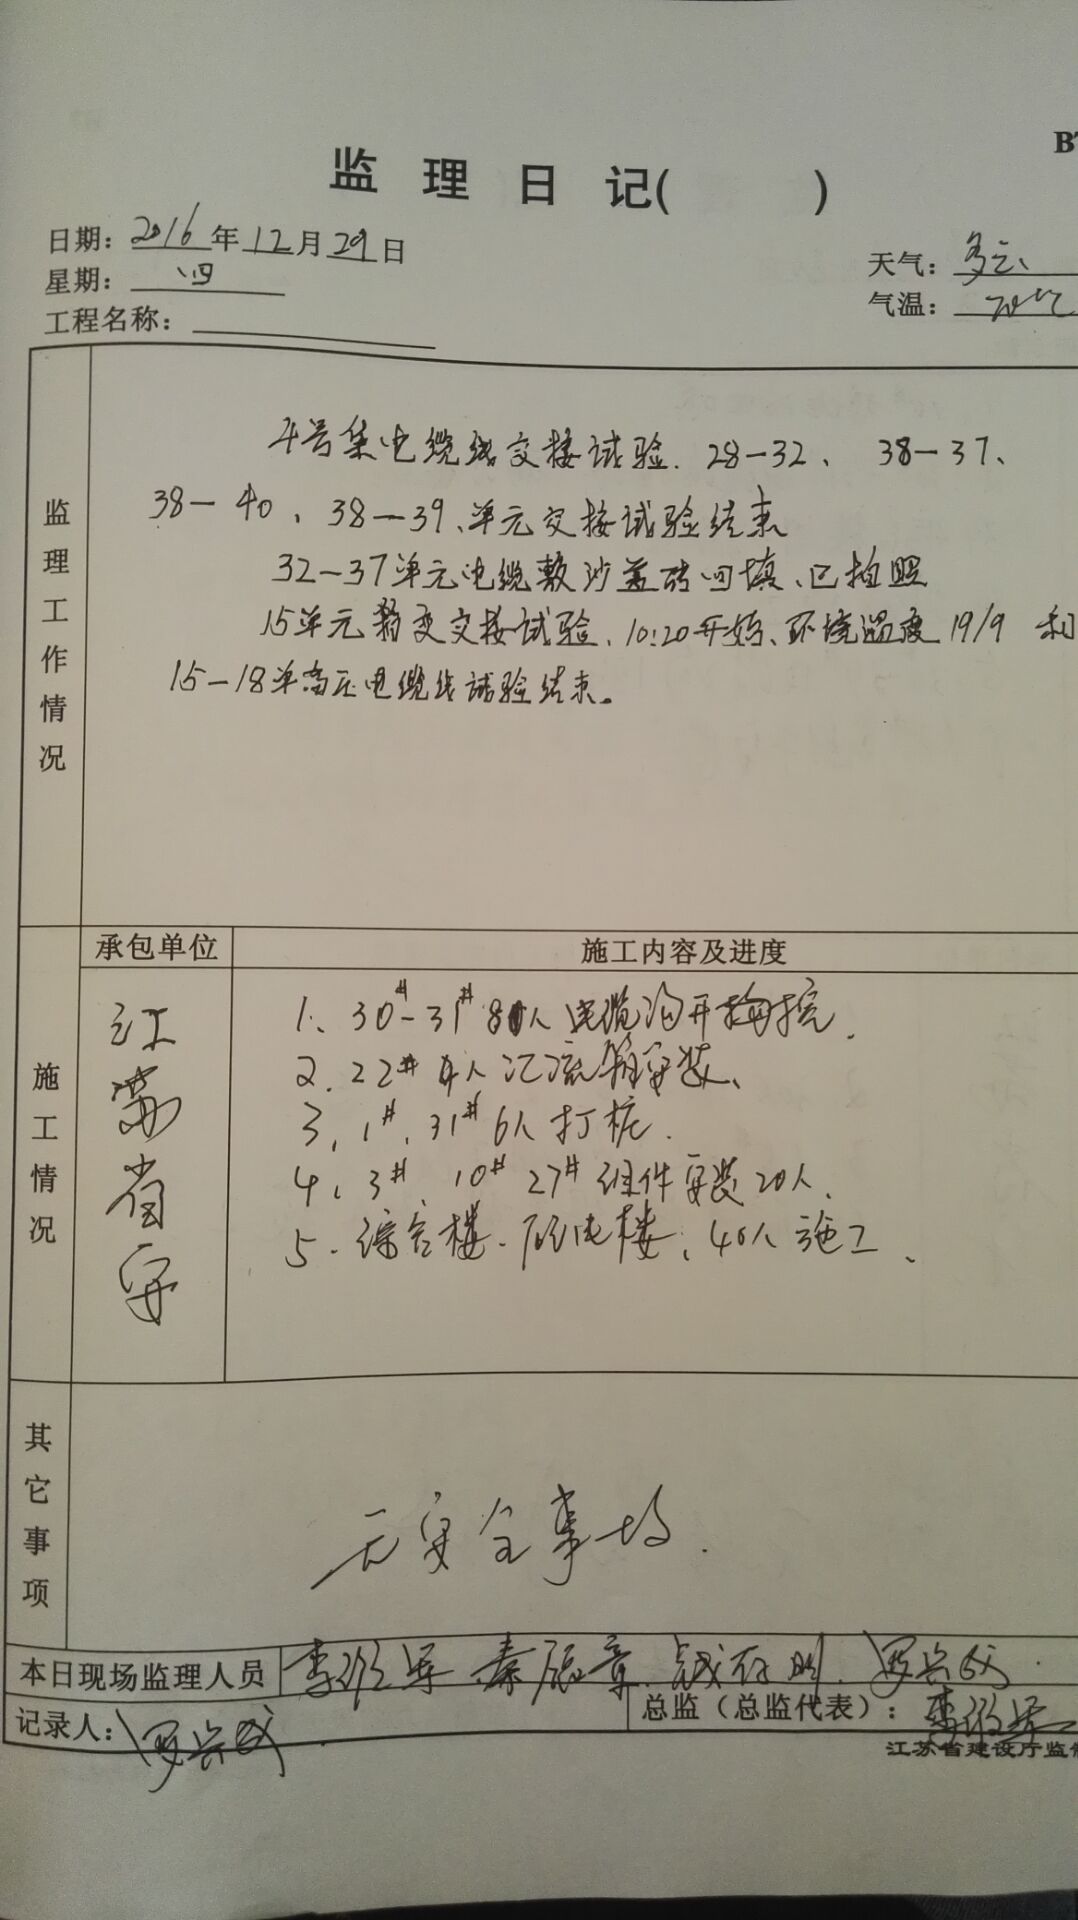 B
监 理 日 记( )
日期：2016年12月29日
星期：四
天气：多云
工程名称：
气温：20℃
监理工作情况
4号集电缆线交接试验. 28-32、 38-37、
38-40、38-39、单元交接试验结束
32-37单元电缆敷沙盖砖回填、已拍照
15单元箱变交接试验、10:20开始、环境温度 19/9
15-18单高压电缆线试验结束。
承包单位 施工内容及进度
施工情况
江苏省安
1、30#-31# 8人 电缆沟开挖.
2、22# 4人 汇流箱安装、
3、1#、31# 6人 打桩.
4、3#、10# 27# 组件安装 20人、
5、综合楼、配电楼、40人 施工、
其它事项
无安全事故.
本日现场监理人员
记录人：罗兴成
总监（总监代表）：
江苏省建设厅监